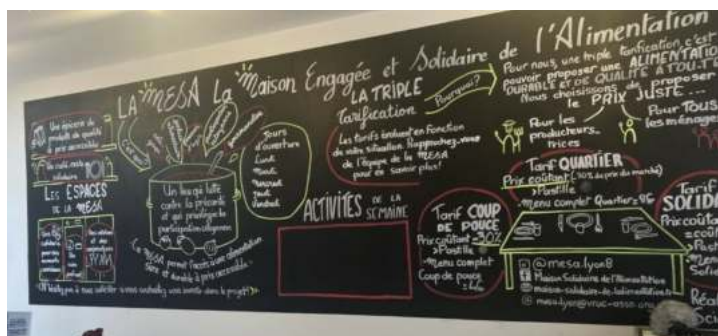 LA MESA La Maison Engagée et Solidaire de l'Alimentation
Une épicerie de
produits de qualité
à prix accessible
Un café resto
solidaire
LES ESPACES
DE LA MESA
C'est quoi?
Un lieu qui lutte
contre la précarité
et qui privilégie la
participation citoyenne
La MESA permet l'accès à une alimentation
saine et durable à prix accessible.
N'hésitez pas à nous solliciter si vous souhaitez vous investir dans le projet!
Jours
d'ouverture
Lundi
Mardi
Mercredi
Jeudi
Vendredi
LA TRIPLE
Tarification
Les tarifs évoluent en fonction
de votre situation. Rapprochez-vous
de l'équipe de la MESA
pour en savoir plus!
Pourquoi?
Pour nous, une triple tarification, c'est
pouvoir proposer une ALIMENTATION
DURABLE ET DE QUALITÉ À TOU.TE
Nous choisissons de proposer
le PRIX JUSTE...
Pour les
producteurs.
trices
Pour TOUS
les ménages
ACTIVITÉS DE LA
SEMAINE
Tarif COUP
DE POUCE
Prix coûtant -30%
>Pastille
-Menu complet
Coup de pouce
Tarif QUARTIER
Prix coûtant
>Pastille
-Menu complet Quartier
Tarif
SOLID
Prix coûta
>Past
-Menu
Solid
@mesa.lyon8
Maison Solidaire de l'Alimentation